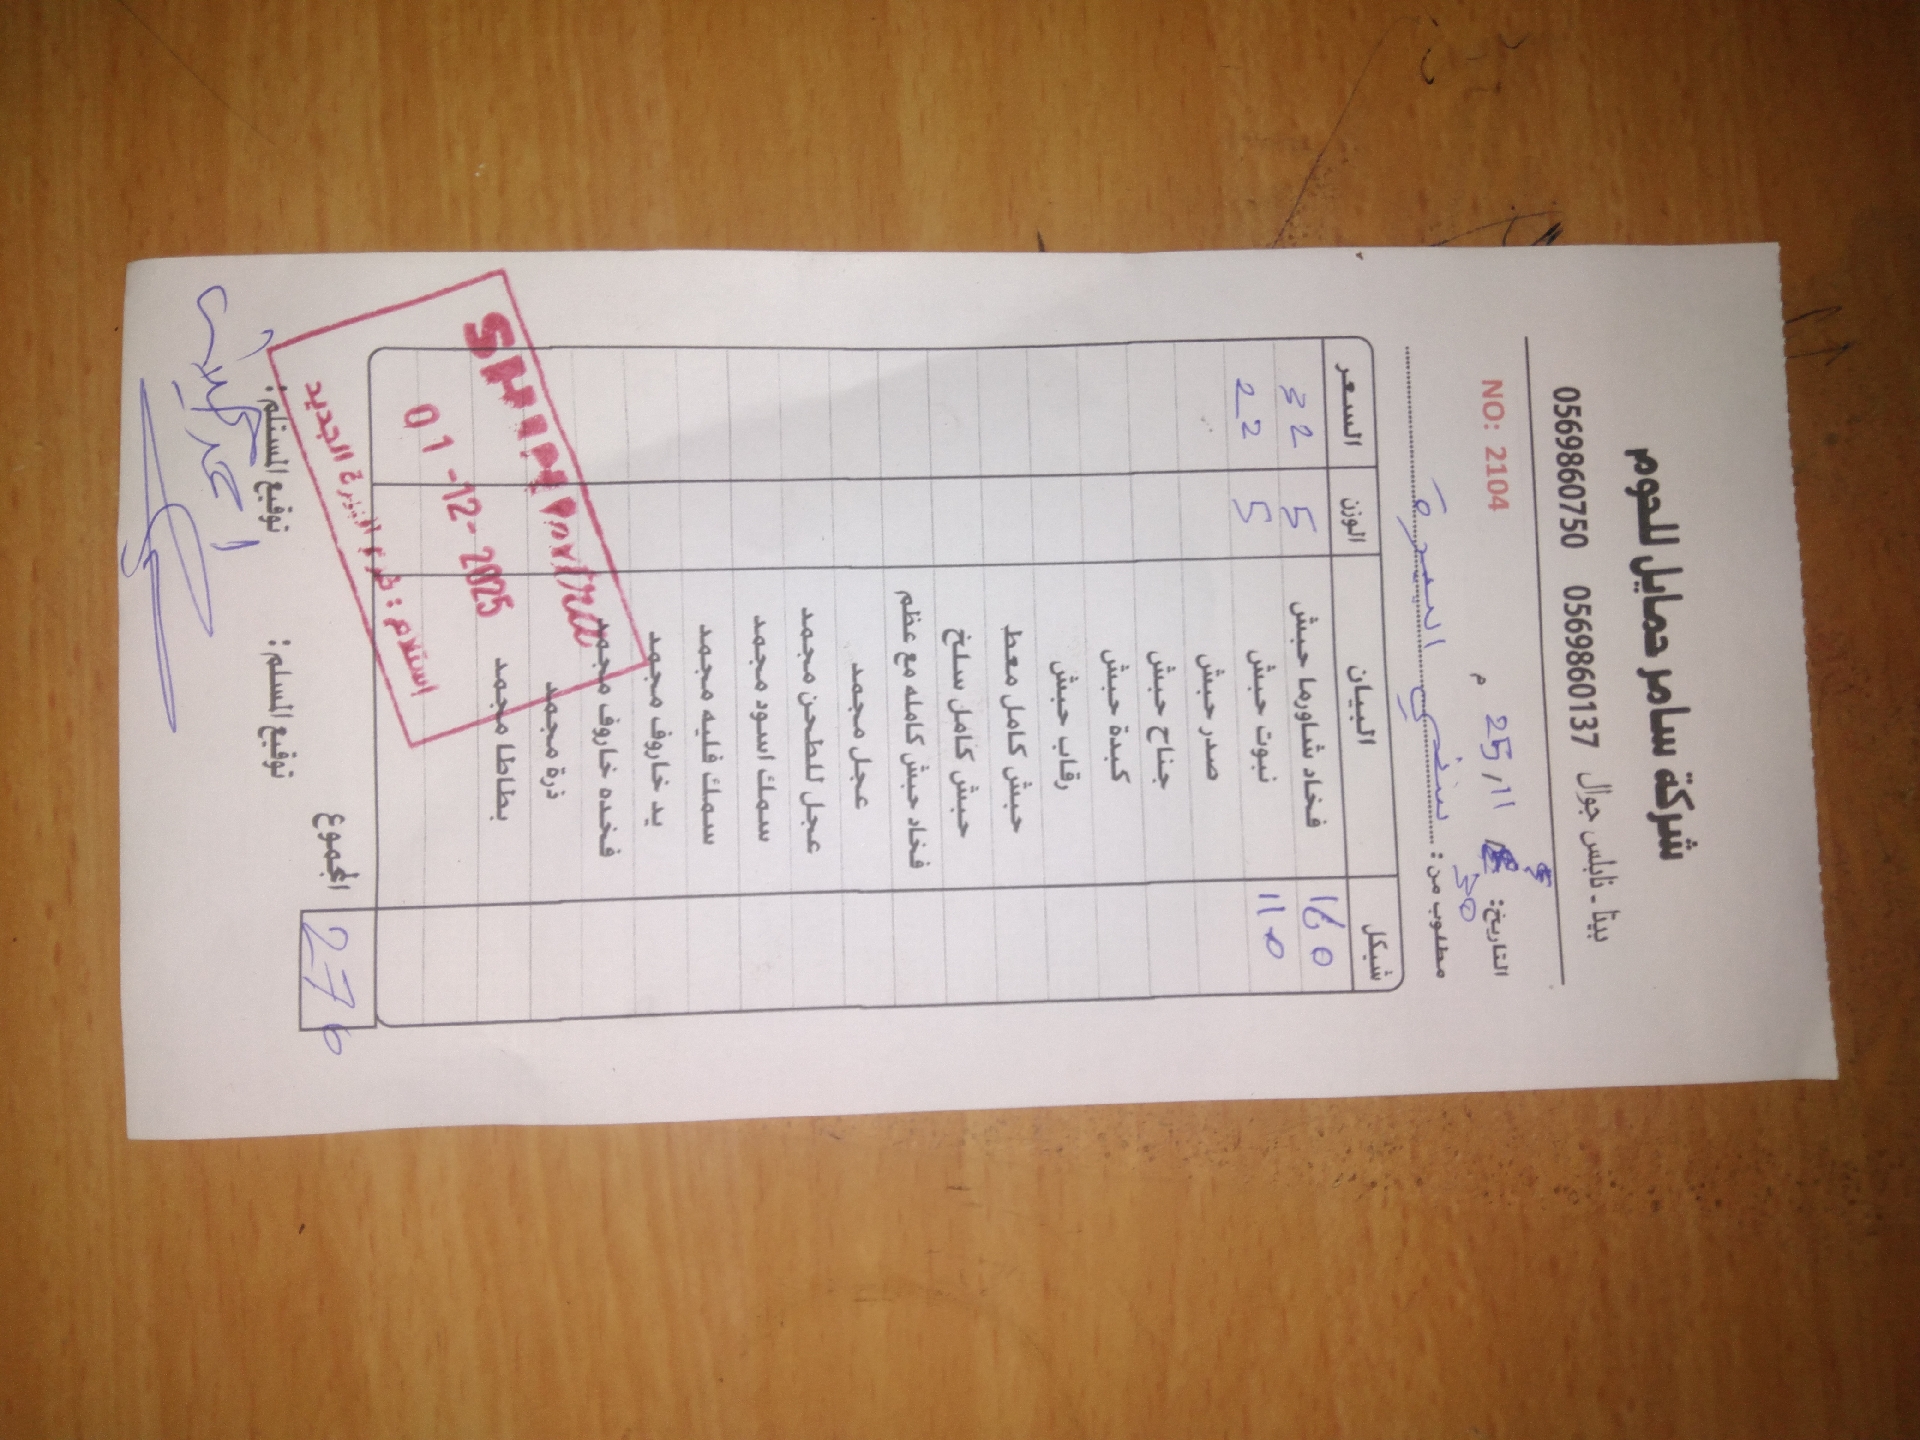 شركة سامر حمايل للحوم
بيتا - نابلس جوال 0569860137 0569860750
التاريخ: 30 / 11 / 25 م NO: 2104
مطلوب من: سنفي البيدرة
شيكل البيان الوزن السعر
160 فخاد شاورما حبش 5 32
110 نبوت حبش 5 22
صدر حبش
جناح حبش
كبدة حبش
رقاب حبش
حبش كامل معط
حبش كامل سلخ
فخاد حبش كامله مع عظم
عجل مجمد
عجل للطحن مجمد
سمك اسود مجمد
سمك فليه مجمد
يد خاروف مجمد
فخده خاروف مجمد
ذرة مجمد
بطاطا مجمد
01-12-2025
استلام : فرع البيدرة الجديد
المجموع 270
توقيع المسلم: توقيع المستلم: